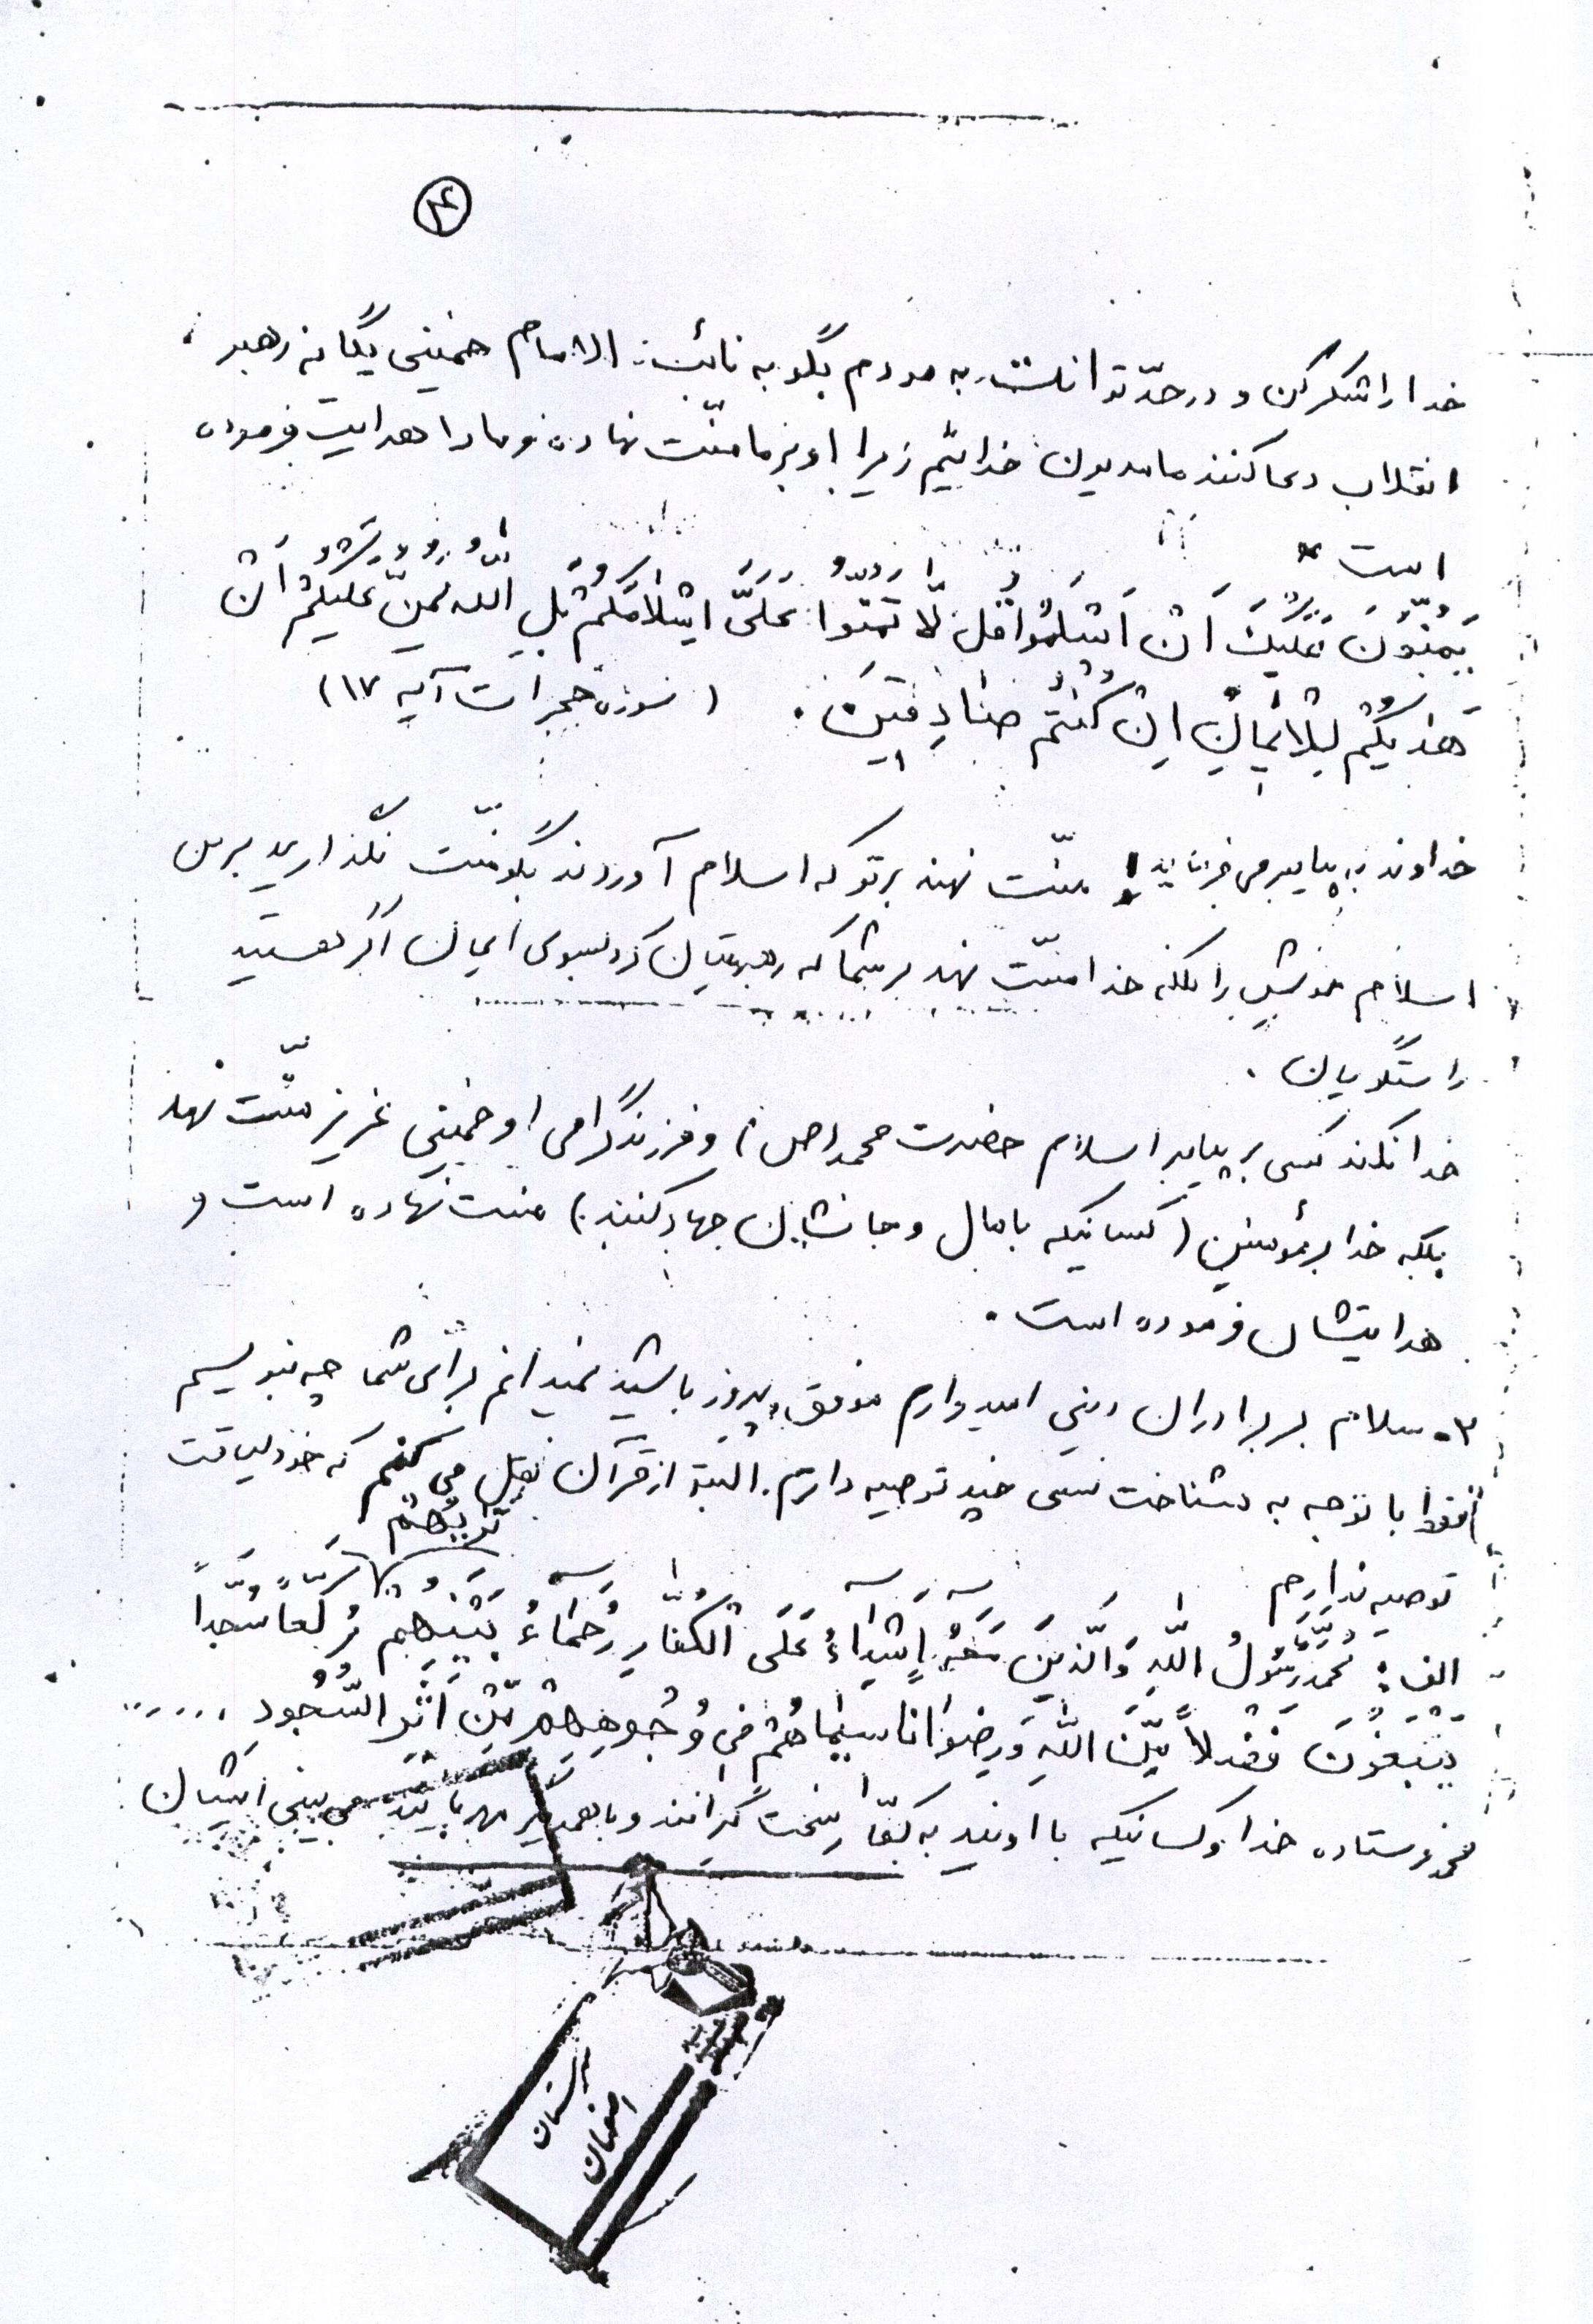 ۴
خدا را شکر کن و در حدّ توانت به مردم بگو به نائب الامام خمینی یگانه رهبر
انقلاب دعا کنند ما مدیون خدائیم زیرا او بر ما منّت نهاده و ما را هدایت فرموده
است
یَمُنّونَ عَلَیْکَ اَنْ اَسْلَمُوا قُل لّا تَمُنّوا عَلَیَّ اِسْلامَکُمْ بَلِ اللّهُ یَمُنُّ عَلَیْکُمْ اَنْ
هَدیٰکُمْ لِلْایمانِ اِنْ کُنْتُمْ صٰادِقینَ . ( سوره حجرات آیه ۱۷ )
خداوند به پیامبر می فرماید منّت نهند بر تو که اسلام آوردند بگو منّت نگذارید بر من
اسلام خویش را بلکه خدا منّت نهد بر شما که رهبریتان کرد بسوی ایمان اگر هستید
راستگویان .
خدا نکند کسی بر پیامبر اسلام حضرت محمد (ص) و فرزند گرامی او خمینی عزیز منّت نهد
بلکه خدا بر مؤمنین ( کسانیکه با مال و جانشان جهاد کنند ) منت نهاده است و
هدایتشان فرموده است .
۳ـ سلام بر برادران دینی امیدوارم موفق و پیروز باشید نمیدانم برای شما چه بنویسم
فقط با توجه به شناخت نسبی چند توصیه دارم . البته از قرآن نقل می کنم که خود لیاقت
توصیه ندارم
تَریٰهُمْ
الف : مُحَمَّدٌ رَسُولُ اللّهِ وَالَّذینَ مَعَهُ اَشِدّآءُ عَلَی الْکُفّارِ رُحَمآءُ بَیْنَهُمْ رُکَّعاً سُجَّداً
یَبْتَغُونَ فَضْلاً مِّنَ اللّهِ وَرِضْواناً سیماهُمْ فی وُجُوهِهِمْ مِّنْ اَثَرِ السُّجُودِ ......
محمد فرستاده خدا و کسانیکه با اویند به کفّار سخت گرانند و با همدیگر مهربانند می بینی ایشان
اصفهان